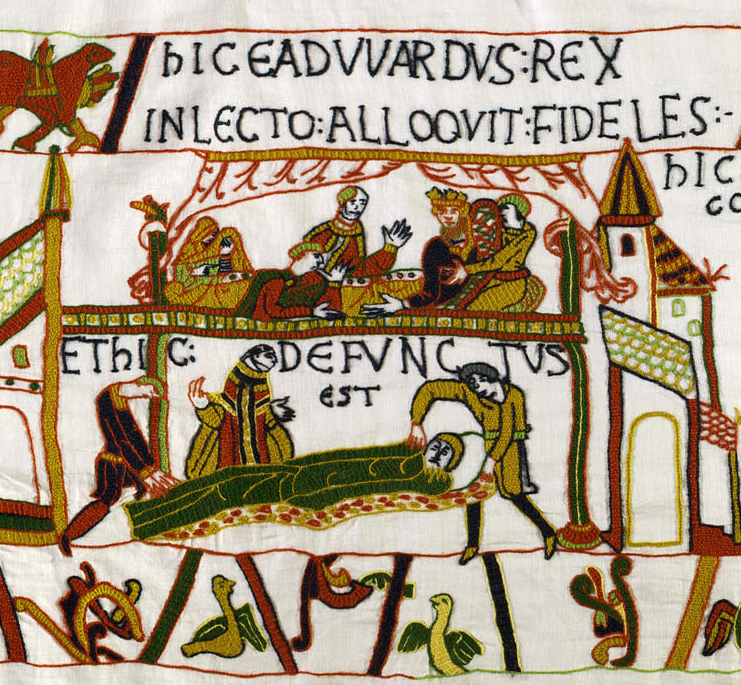 hIC EADVVARDVS:REX
IN LECTO:ALLOQVIT:FIDELES:-
hIC
CO
ET hIC: DEFVNCTVS
EST